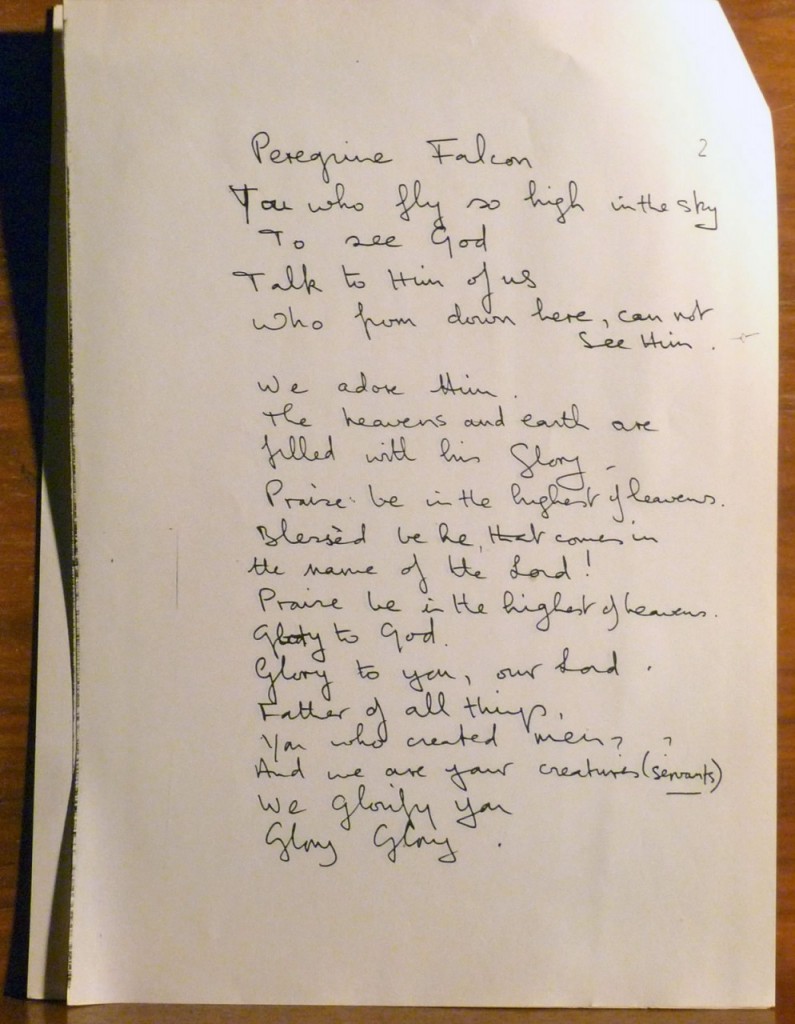 2
Peregrine Falcon
You who fly so high in the sky
To see God
Talk to Him of us
Who from down here, can not
See Him.
We adore Him.
The heavens and earth are
filled with his Glory
Praise be in the highest of heavens.
Blessèd be he, that comes in
the name of the Lord!
Praise be in the highest of heavens.
Glory to God.
Glory to you, our Lord.
Father of all things,
You who created men? ?
And we are your creatures (servants)
We glorify you
Glory Glory.